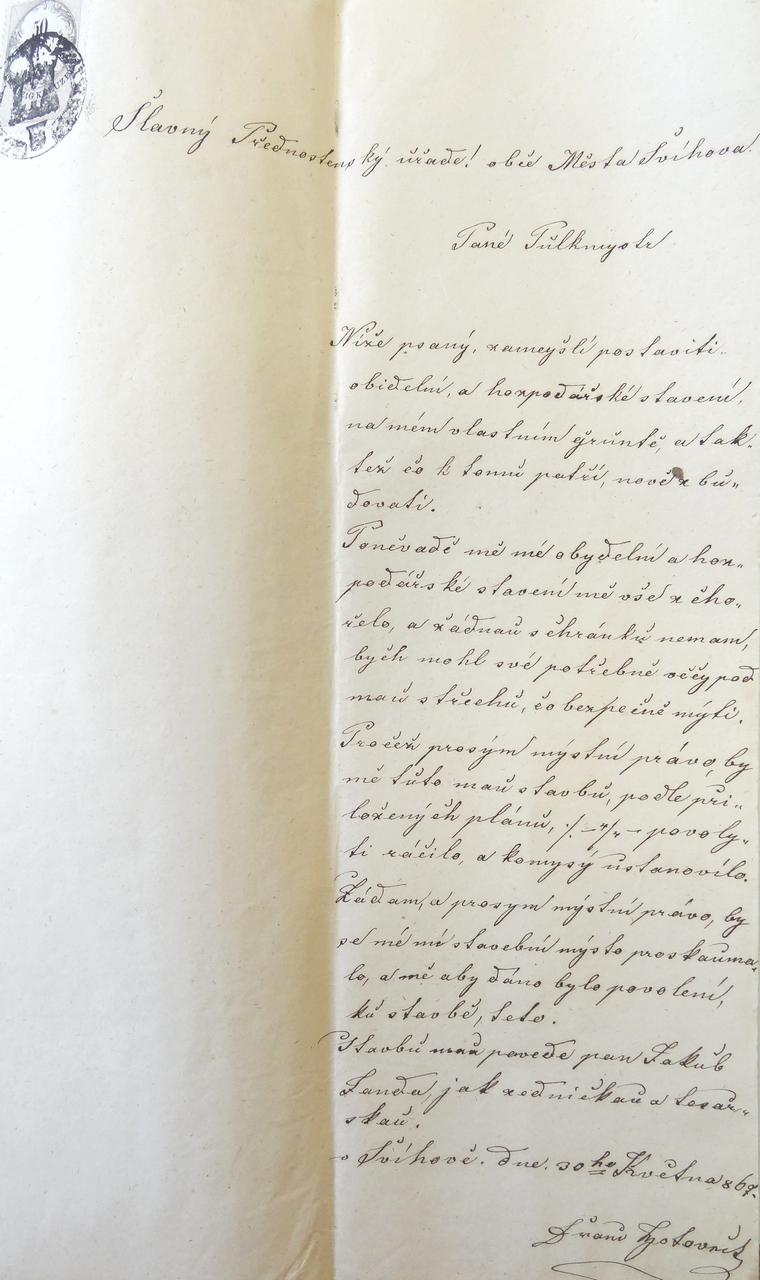 50
Slavný Přednostenský úřade! obce Města Švihova.
Pané Půlkmystr
Níže psaný, zameyšlí postaviti
obidelní, a hozpodářské stavení,
na mém vlastním grůntě, a tak-
též co k tomů patří, nově zbů-
dovati.
Poněvadč mě mé obydelní a hoz-
podářské stavení mě vše z cho-
řelo, a žádnaů schránků nemam,
bych mohl své potřebné věčy pod
maů střechů, co bezpečně mýti.
Pročež prosým mýstní právo, by
mě tůto maů stavbů, podle při-
ložených plánů, ·/. povoly-
ti ráčilo, a komysý ustanovilo.
Žádam, a prosym mýstní právo, by
se mé mi stavební mýsto proskauma-
lo, a mě aby dáno bylo povolení,
ků stavbě, teto.
Stavbů maů povede pan Jakůb
Janda, jak zedničkaů a tesař-
skaů.
v Švíhově. dne. 30ho Května 867.